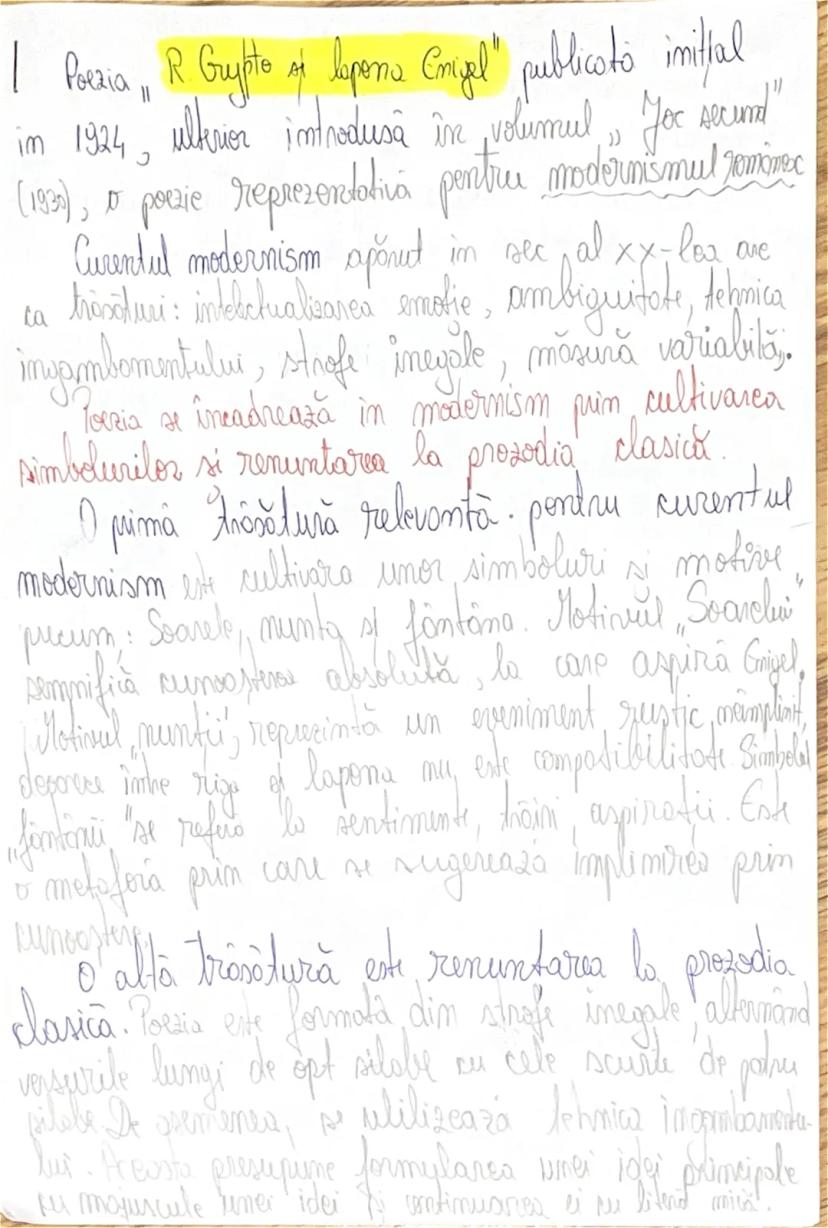 I Poezia „ R. Crypto și lapona Enigel" publicată inițial
în 1924, ulterior introdusă în volumul „ Joc secund"
(1930), o poezie reprezentativă pentru modernismul românesc
Curentul modernism apărut în sec al xx-lea are
ca trăsături: intelectualizarea emoție, ambiguitate, tehnica
ingambamentului, strofe inegale, măsură variabilă.
Poezia se încadrează în modernism prin cultivarea
simbolurilor si renuntarea la prozodia clasică.
O primă trăsătură relevantă pentru curentul
modernism este cultivara unor simboluri si motive
precum: Soarele, nunta și fântâna. Motivul „Soarelui"
semnifică cunoașterea absolută, la care aspiră Enigel.
Motivul „nunții", reprezintă un eveniment rustic neîmplinit,
deoarece între riga și lapona nu este compatibilitate. Simbolul
„fântânii "se referă la sentimente, trăiri, aspirații. Este
o metaforă prin care se sugerează împlinirea prin
cunoaștere.
O altă trăsătură este renuntarea la prozodia
clasică. Poezia este formată din strofe inegale, alternând
versurile lungi de opt silabe cu cele scurte de patru
silabe. De asemenea, se utilizează tehnica ingambamentu-
lui. Aceasta presupune formularea unei idei principale
cu majuscule unei idei și continuarea ei cu literă mică.